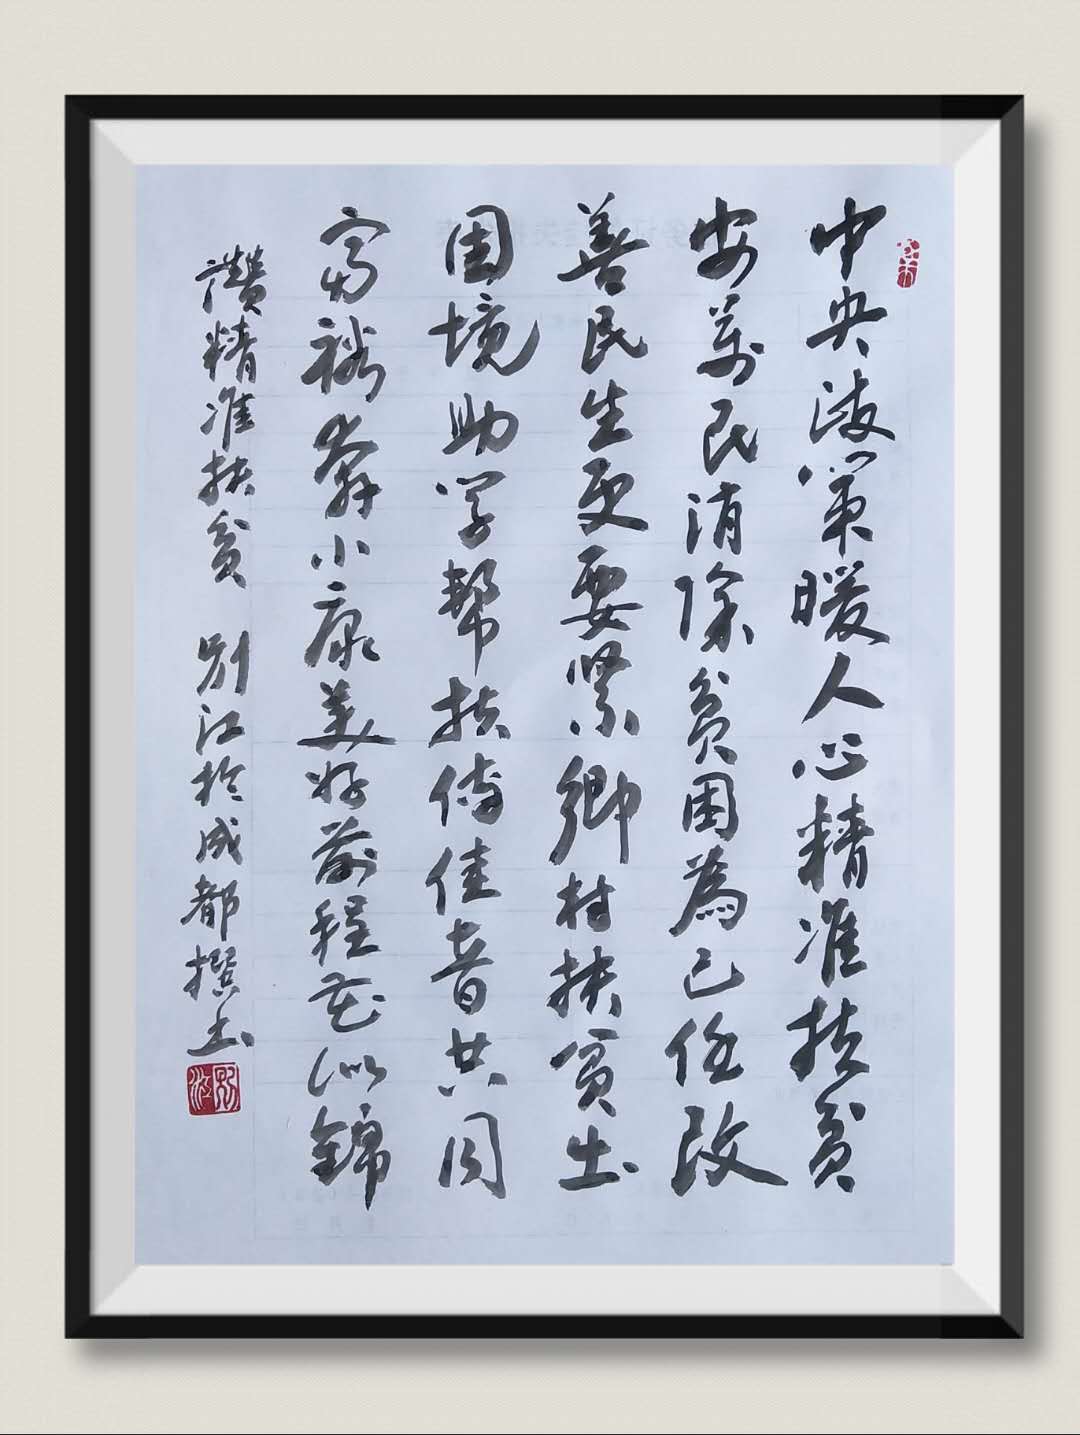 中央政策暖人心精准扶贫
安万民消除贫困為己任改
善民生更要紧鄉村扶贫出
困境助学帮扶传佳音共同
富裕奔小康美好前程花似錦
讚精准扶贫 别江於成都撰书
别江